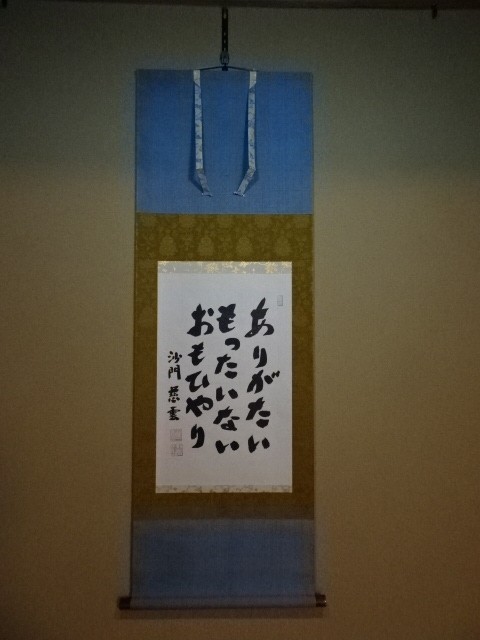 ありがたい
もったいない
おもひやり
沙門 慈雲